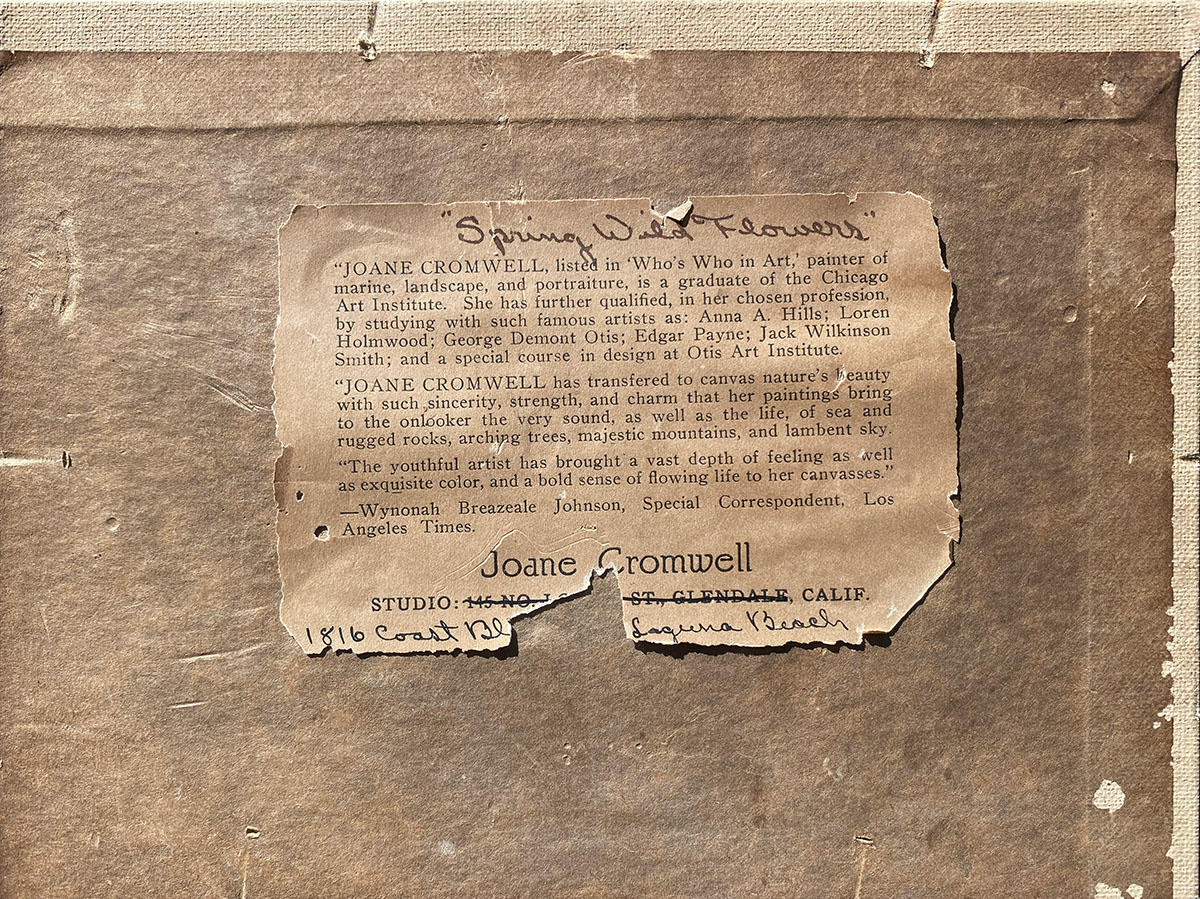 "Spring Wild Flowers"
"JOANE CROMWELL, listed in 'Who's Who in Art,' painter of
marine, landscape, and portraiture, is a graduate of the Chicago
Art Institute. She has further qualified, in her chosen profession,
by studying with such famous artists as: Anna A. Hills; Loren
Holmwood; George Demont Otis; Edgar Payne; Jack Wilkinson
Smith; and a special course in design at Otis Art Institute.
"JOANE CROMWELL has transfered to canvas nature's beauty
with such sincerity, strength, and charm that her paintings bring
to the onlooker the very sound, as well as the life, of sea and
rugged rocks, arching trees, majestic mountains, and lambent sky.
"The youthful artist has brought a vast depth of feeling as well
as exquisite color, and a bold sense of flowing life to her canvasses."
—Wynonah Breazeale Johnson, Special Correspondent, Los
Angeles Times.
Joane Cromwell
STUDIO: 145 NO. ST., GLENDALE, CALIF.
1816 Coast Bl Laguna Beach